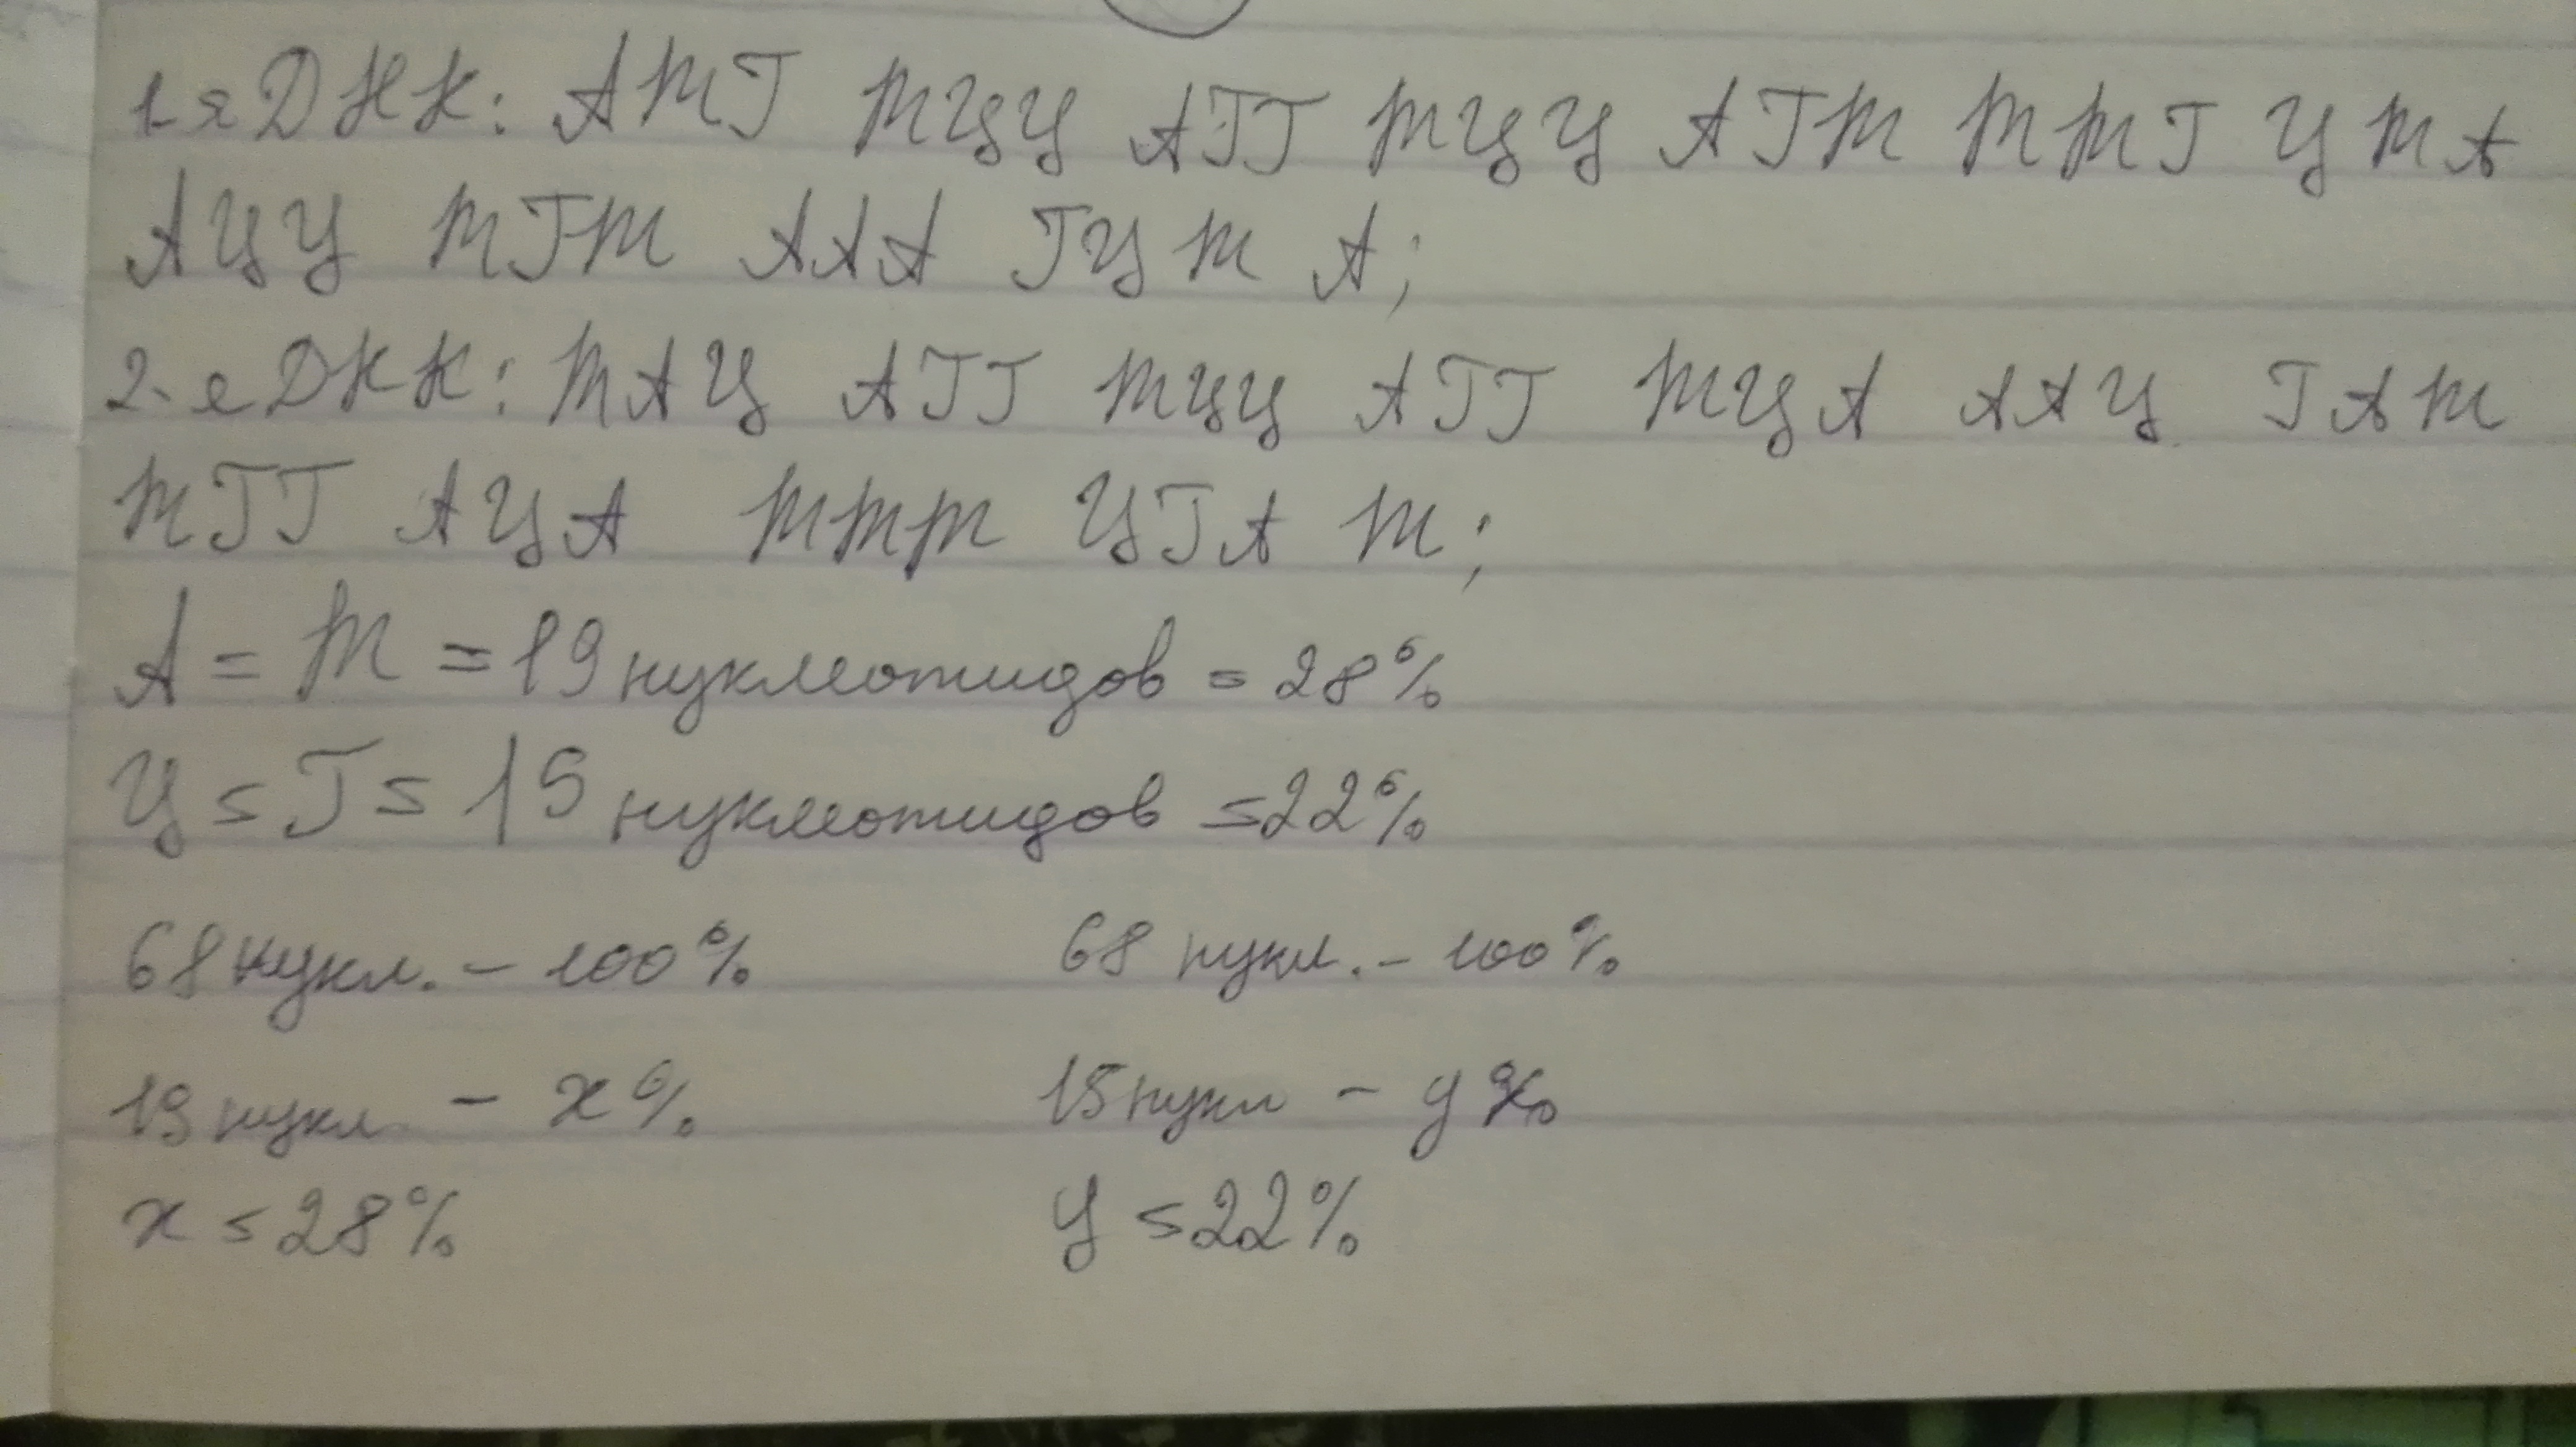 1-я ДНК: АТГ ТЦЦ АГГ ТЦЦ АГТ ТТГ ЦТА
АЦЦ ТГТ ААА ГЦТ А;
2-я ДНК: ТАЦ АГГ ТЦЦ АГГ ТЦА ААЦ ГАТ
ТГГ АЦА ТТТ ЦГА Т;
А = Т = 19 нуклеотидов = 28%
Ц = Г = 15 нуклеотидов = 22%
68 нукл. – 100% 68 нукл. – 100%
19 нукл – x% 15 нукл – y %
x = 28% y = 22%